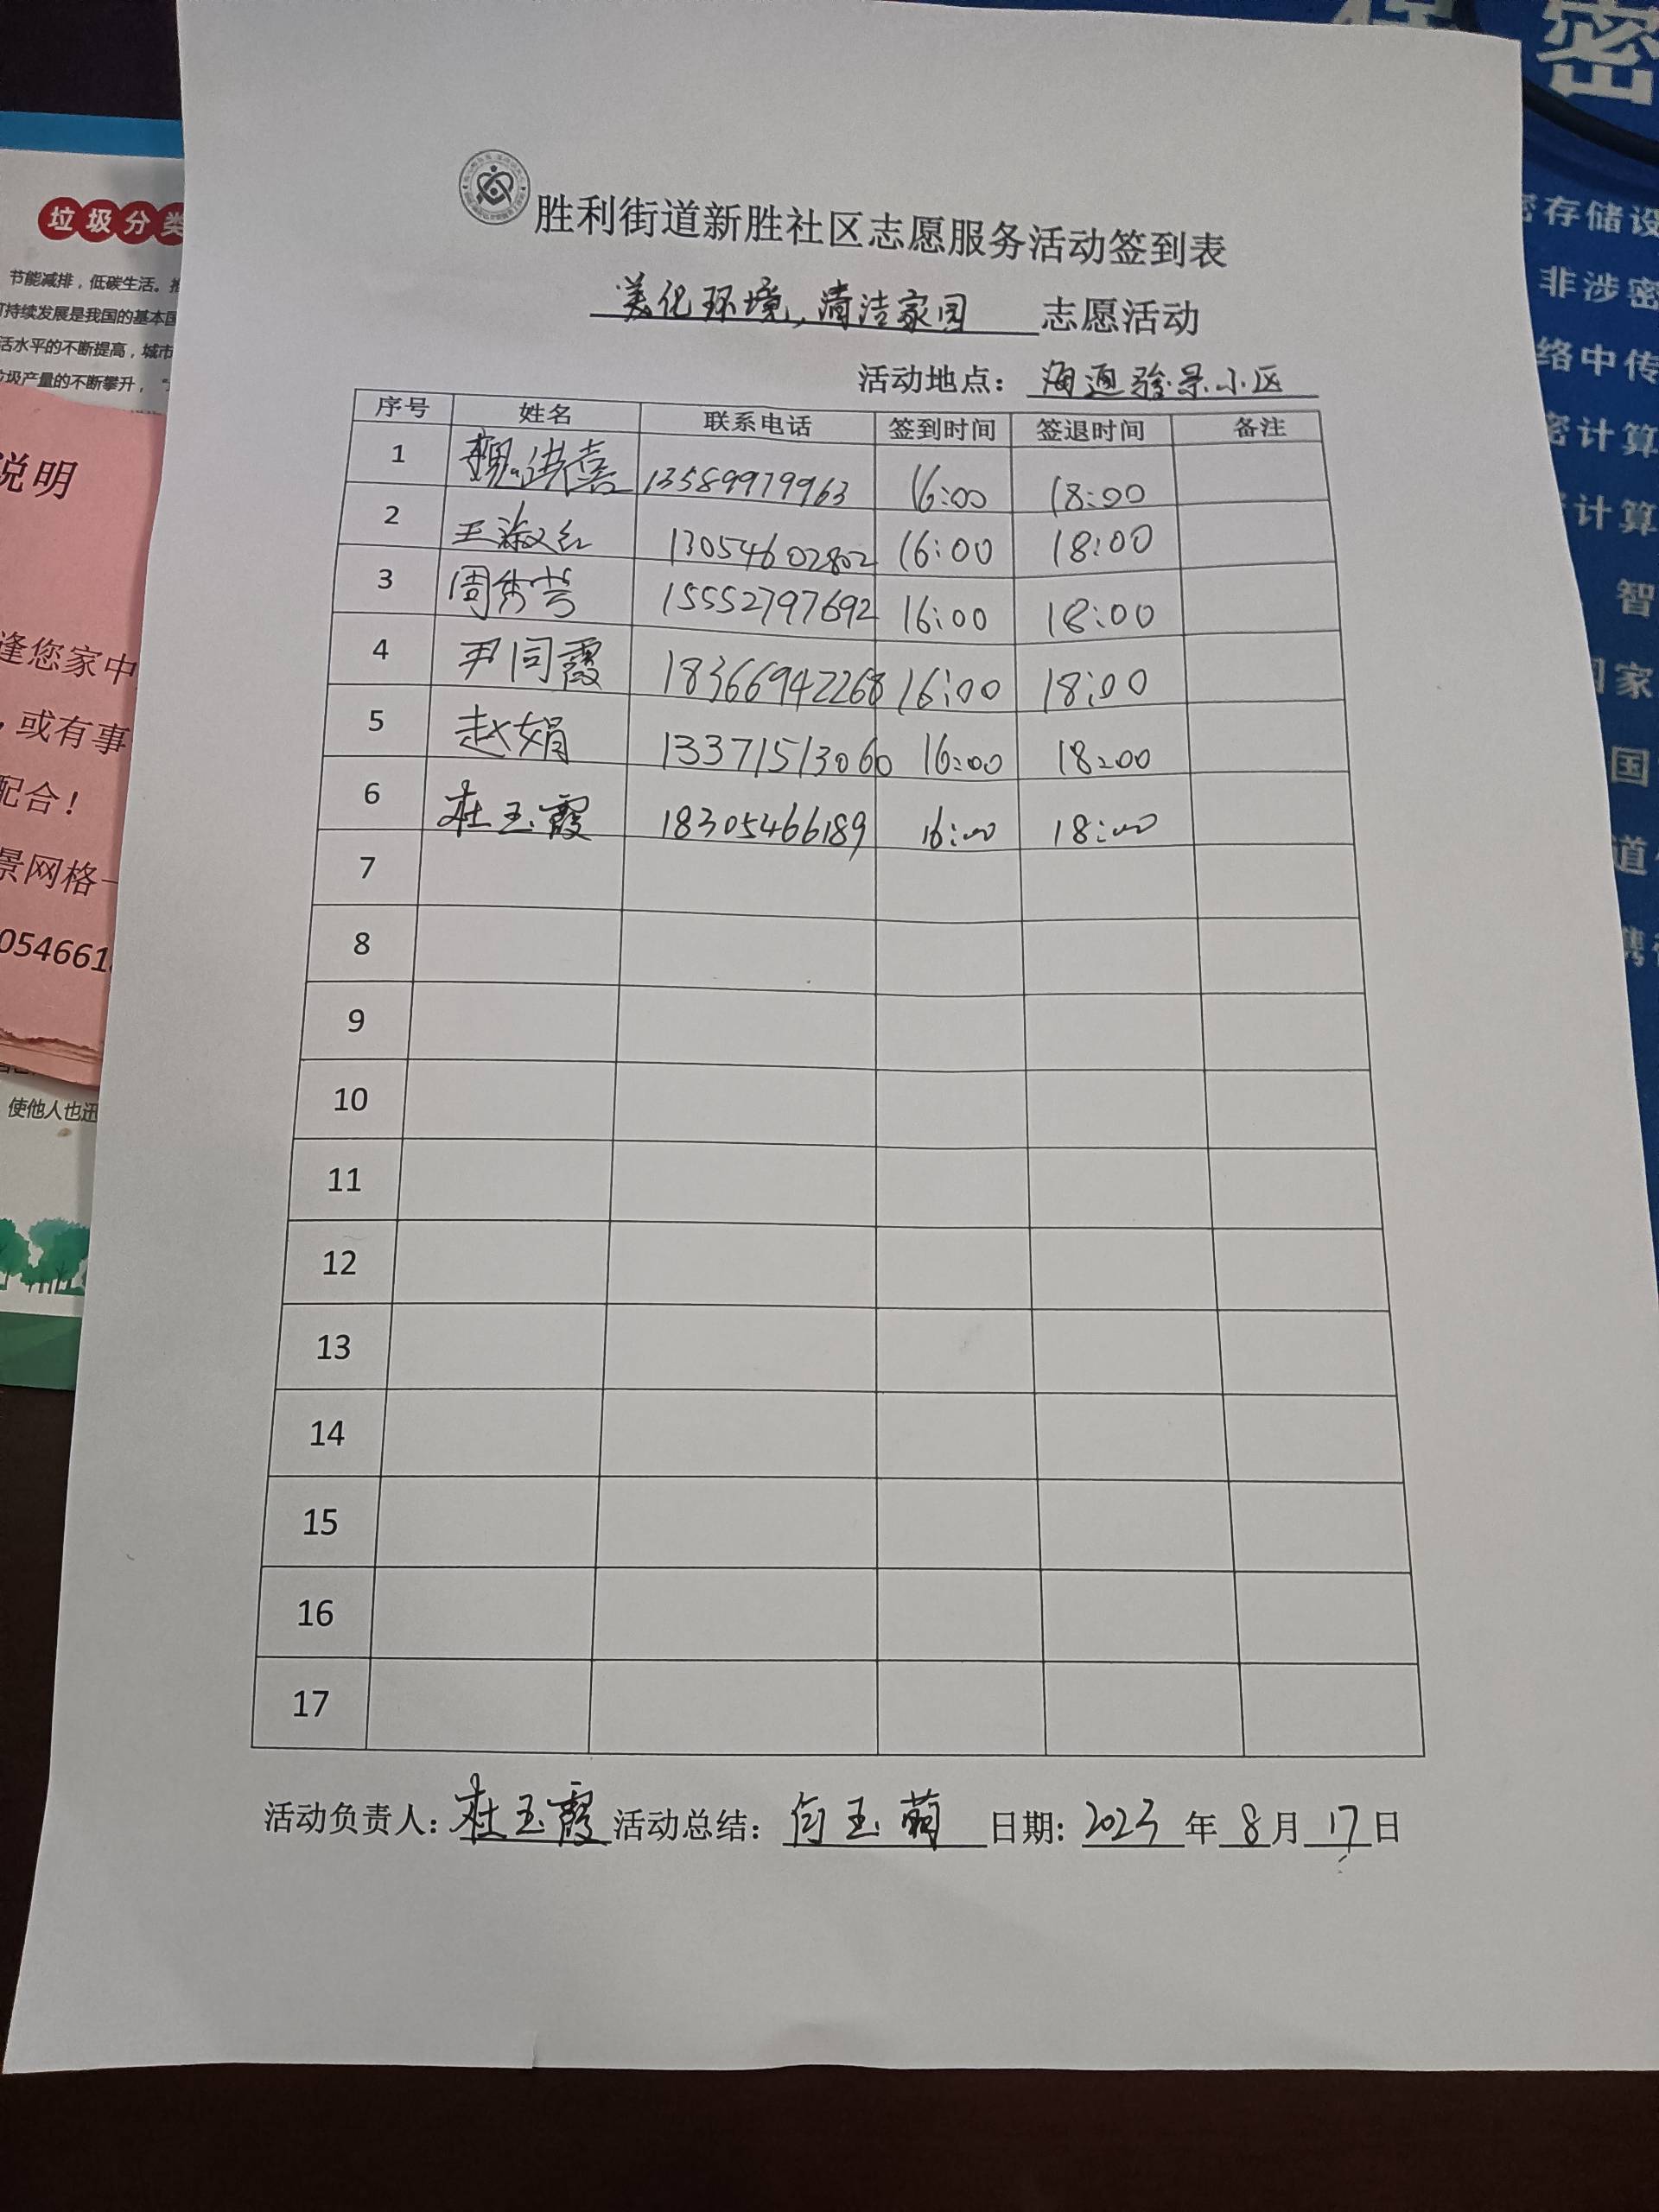 密
垃圾分类
密存储设
节能减排，低碳生活。
可持续发展是我国的基本国
活水平的不断提高，城市
垃圾产量的不断攀升，
非涉密
络中传
密计算
计算
智
国家
国
道
携
说明
逢您家中
，或有事
配合！
景网格
0546618
使他人也迅
胜利街道新胜社区志愿服务活动签到表
美化环境，清洁家园 志愿活动
活动地点：海通骏景小区
序号 姓名 联系电话 签到时间 签退时间 备注
1 魏洪喜 13589979963 16:00 18:00
2 王淑红 13054602802 16:00 18:00
3 周秀芳 15552797692 16:00 18:00
4 尹同霞 18366942268 16:00 18:00
5 赵娟 13371513060 16:00 18:00
6 杜玉霞 18305466189 16:00 18:00
7
8
9
10
11
12
13
14
15
16
17
活动负责人：杜玉霞 活动总结：何玉萌 日期：2023 年 8 月 17 日